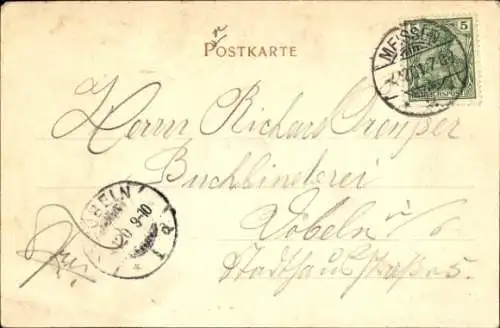 POSTKARTE
5
MEISSEN
Herrn Richard Preußer
Buchbinderei
Döbeln i/S.
Stadthausstraße 5.
DÖBELN
9-10